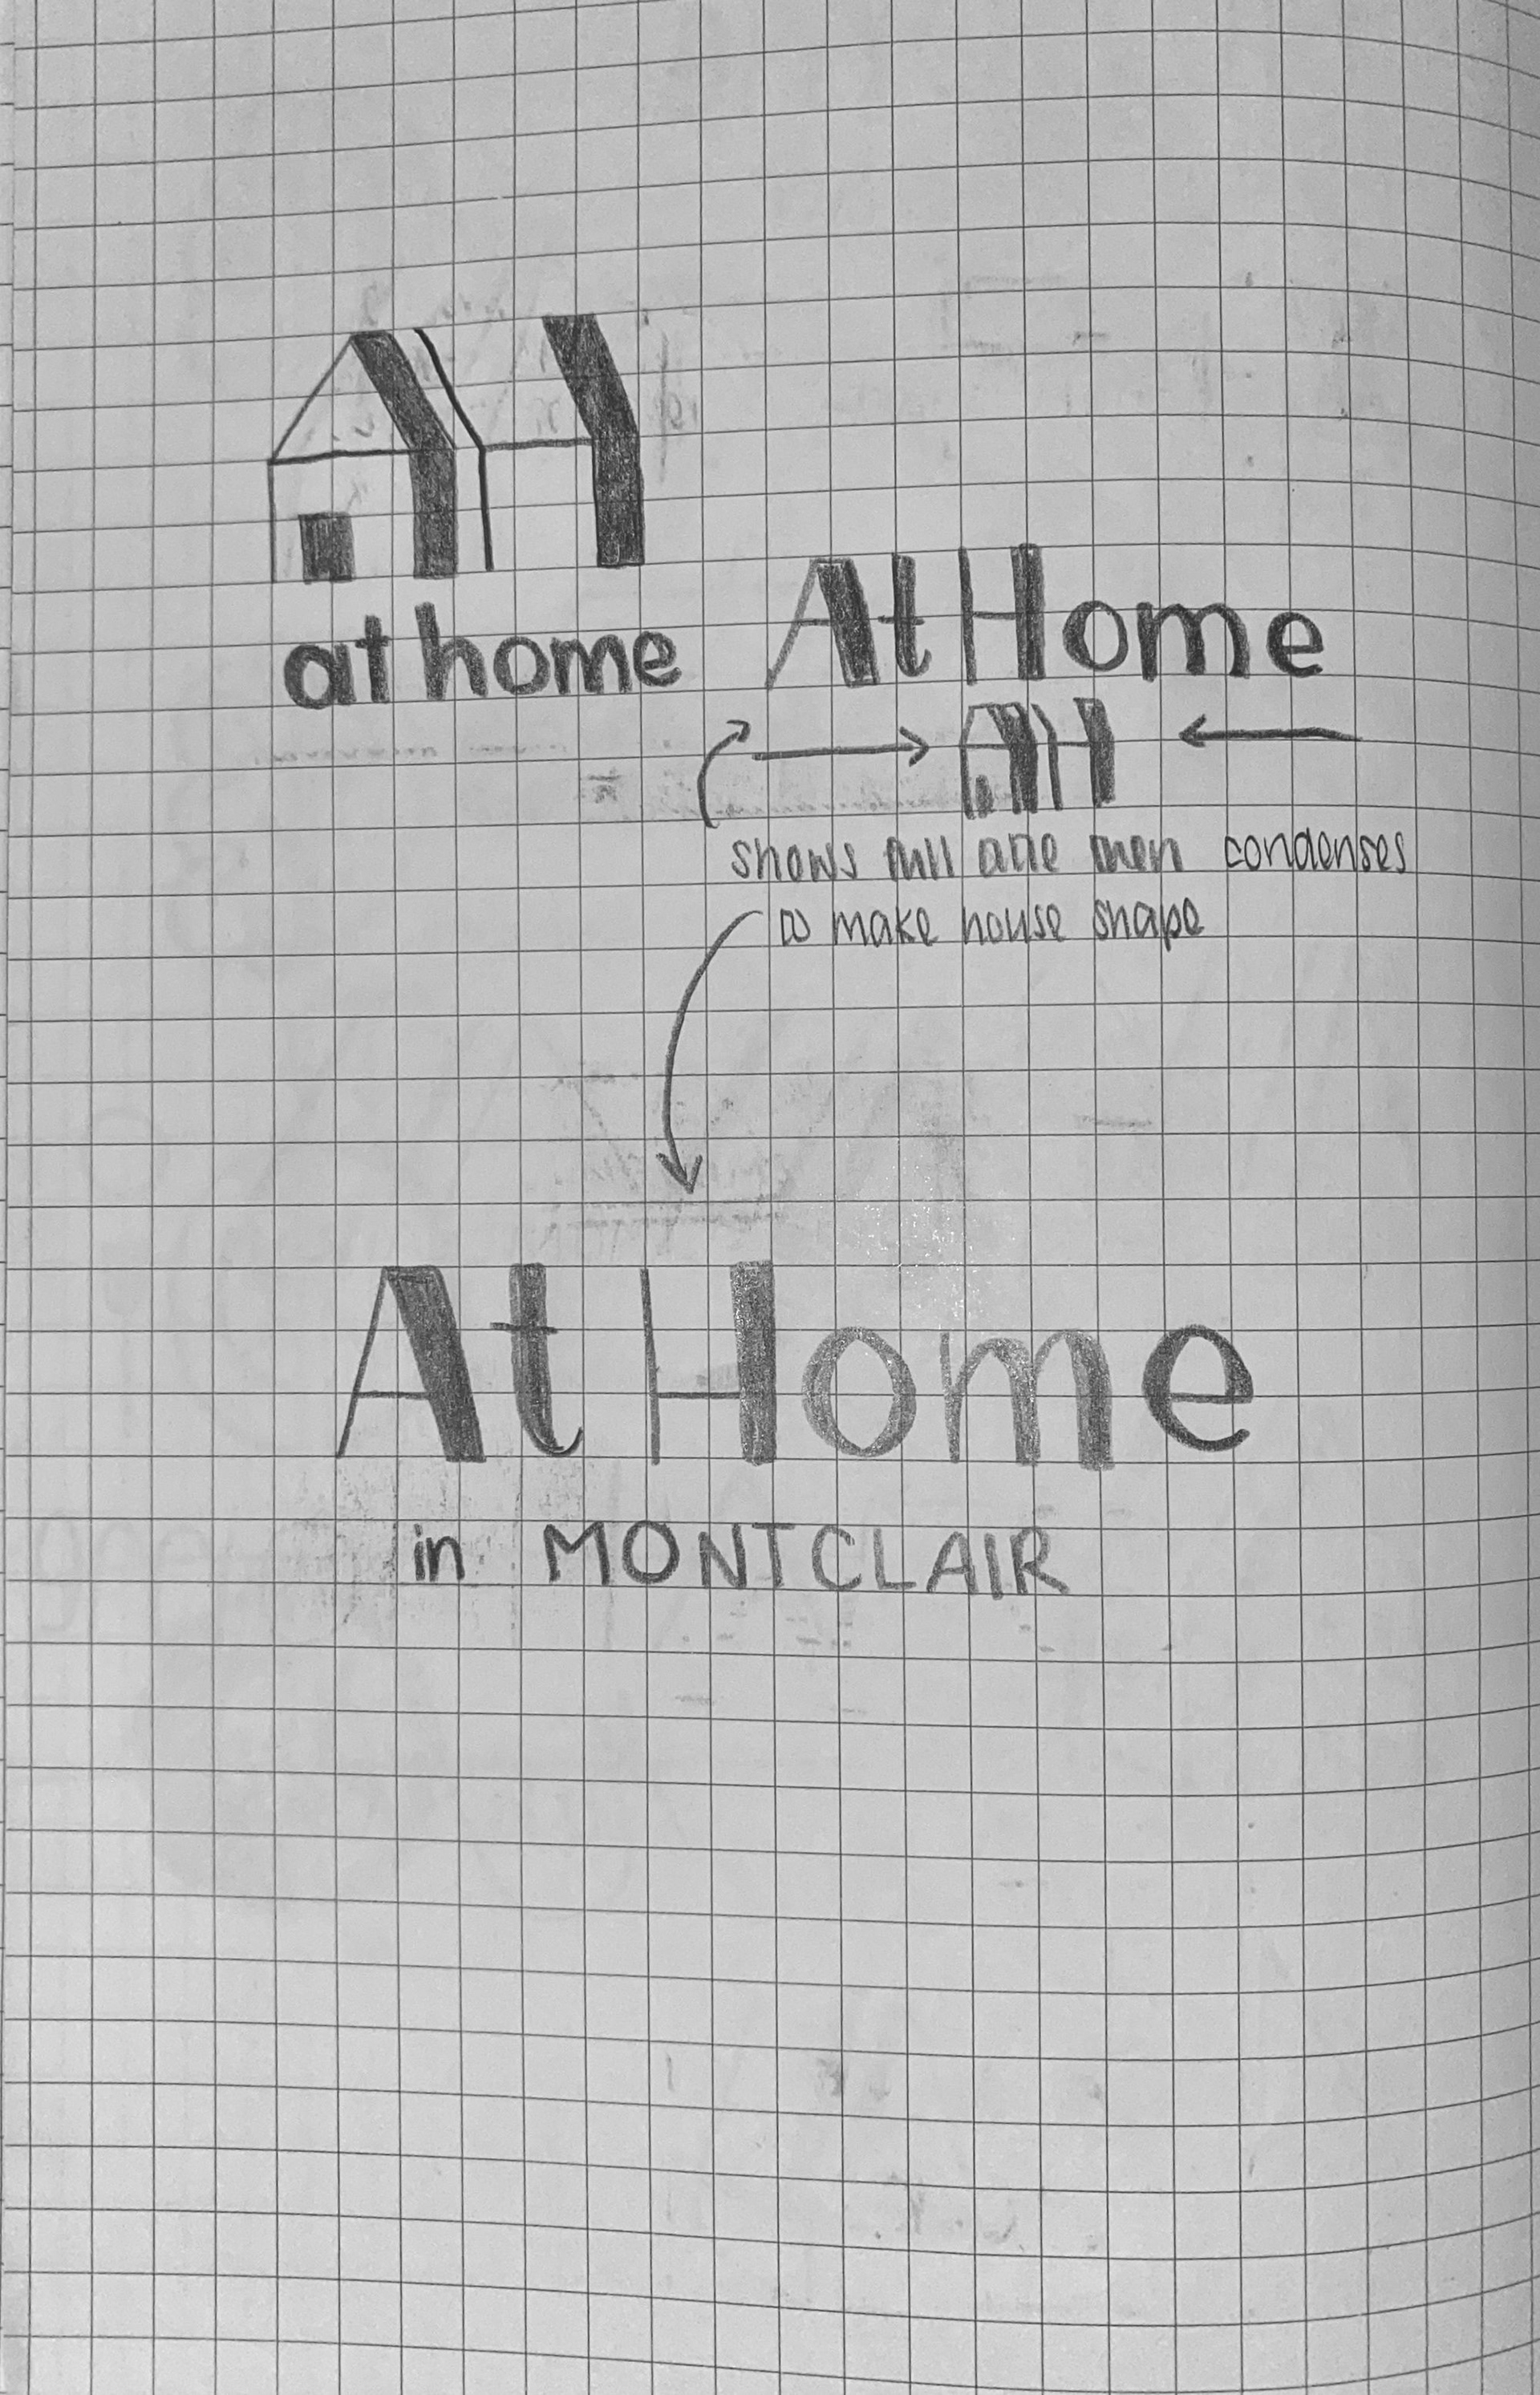 AH
at home
At Home
AH
shows full title then condenses
to make house shape
At Home
in MONTCLAIR